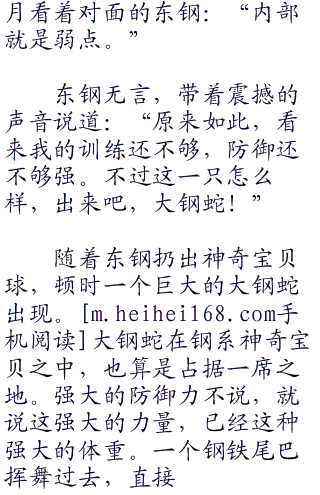 月看着对面的东钢：“内部
就是弱点。”
东钢无言，带着震撼的
声音说道：“原来如此，看
来我的训练还不够，防御还
不够强。不过这一只怎么
样，出来吧，大钢蛇！”
随着东钢扔出神奇宝贝
球，顿时一个巨大的大钢蛇
出现。[m.heihei168.com手
机阅读]大钢蛇在钢系神奇宝
贝之中，也算是占据一席之
地。强大的防御力不说，就
说这强大的力量，已经这种
强大的体重。一个钢铁尾巴
挥舞过去，直接